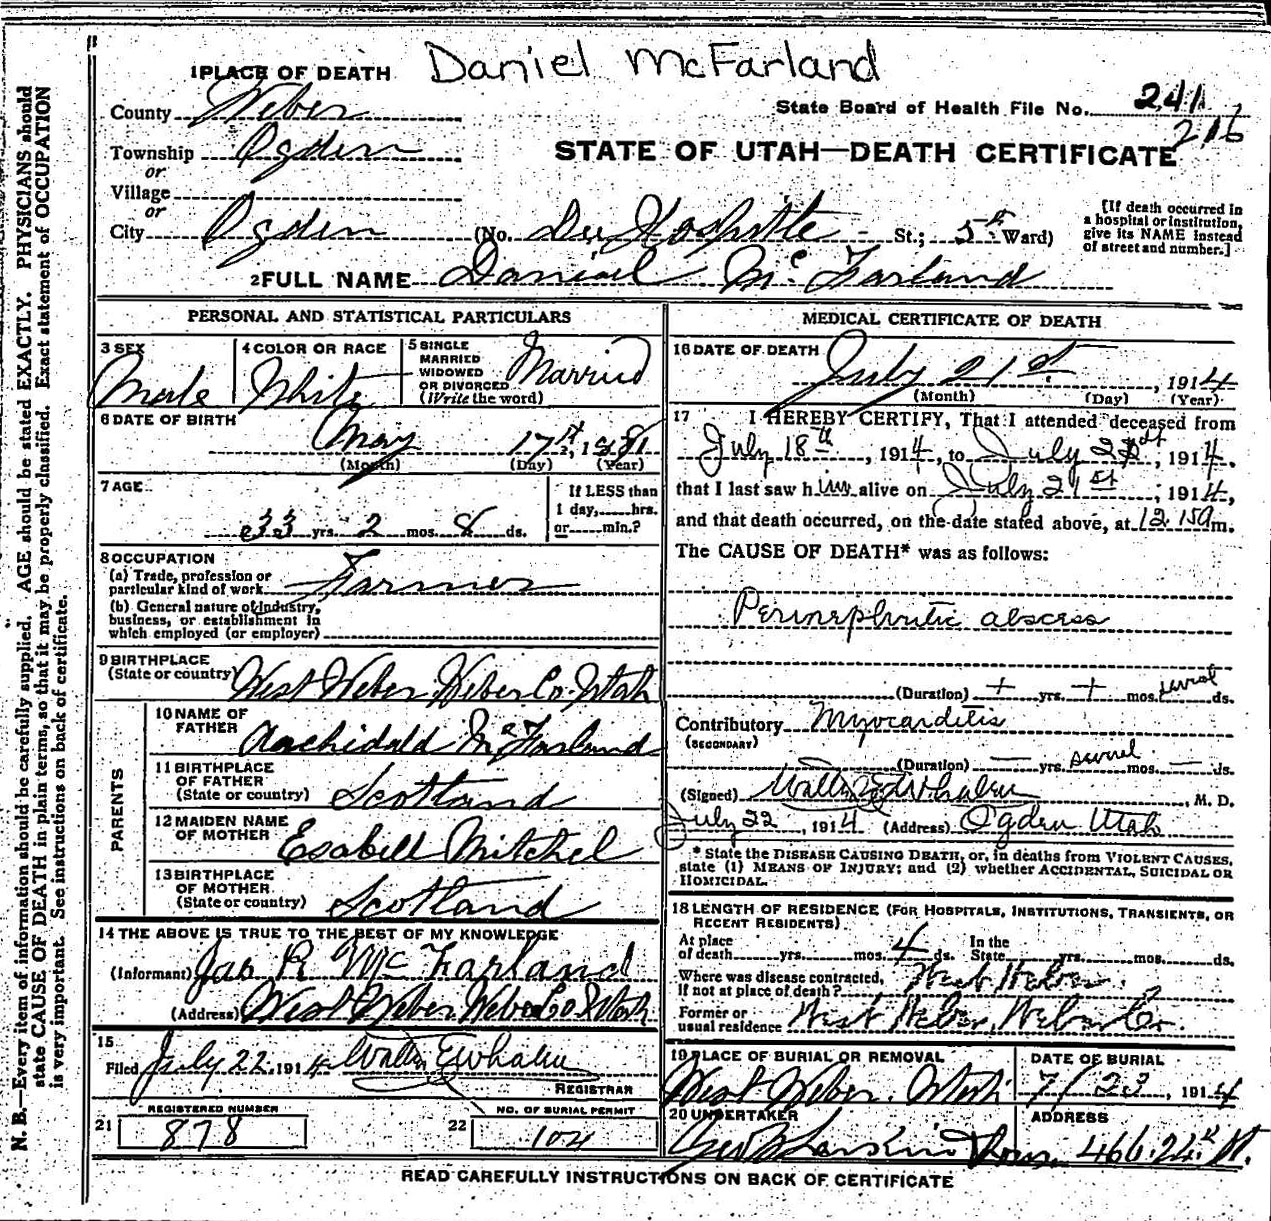 Daniel McFarland
1 PLACE OF DEATH
County Weber
State Board of Health File No. 241
216
Township Ogden
or
Village
or
STATE OF UTAH—DEATH CERTIFICATE
City Ogden (No. Dee Hospitle St.; 5th Ward)
[If death occurred in
a hospital or institution,
give its NAME instead
of street and number.]
2 FULL NAME Daniael Mc Farland
PERSONAL AND STATISTICAL PARTICULARS
3 SEX
Male
4 COLOR OR RACE
White
5 SINGLE
MARRIED
WIDOWED
OR DIVORCED
(Write the word)
Married
6 DATE OF BIRTH
May 17th, 1881
(Month) (Day) (Year)
7 AGE
33 yrs. 2 mos. 8 ds.
If LESS than
1 day, hrs.
or min.?
8 OCCUPATION
(a) Trade, profession or
particular kind of work Farmer
(b) General nature of industry,
business, or establishment in
which employed (or employer)
9 BIRTHPLACE
(State or country) West Weber Weber Co. Utah
PARENTS
10 NAME OF
FATHER Archidald McFarland
11 BIRTHPLACE
OF FATHER
(State or country) Scotland
12 MAIDEN NAME
OF MOTHER Esabell Mitchel
13 BIRTHPLACE
OF MOTHER
(State or country) Scotland
14 THE ABOVE IS TRUE TO THE BEST OF MY KNOWLEDGE
(Informant) Jas R McFarland
(Address) West Weber Weber Co Utah
15
Filed July 22, 1914 Walter E Whalen
REGISTRAR
REGISTERED NUMBER
21 878
NO. OF BURIAL PERMIT
22 104
MEDICAL CERTIFICATE OF DEATH
16 DATE OF DEATH
July 21st, 1914
(Month) (Day) (Year)
17 I HEREBY CERTIFY, That I attended deceased from
July 18th, 1914, to July 21st, 1914,
that I last saw him alive on July 21st, 1914,
and that death occurred, on the date stated above, at 12.15 a m.
The CAUSE OF DEATH* was as follows:
Perinephritic abscess
(Duration) + yrs. + mos. several ds.
Contributory Myocarditis
(SECONDARY)
(Duration) — yrs. several mos. — ds.
(Signed) Walter E Whalen, M. D.
July 22, 1914 (Address) Ogden Utah
* State the DISEASE CAUSING DEATH, or, in deaths from VIOLENT CAUSES,
state (1) MEANS OF INJURY; and (2) whether ACCIDENTAL, SUICIDAL OR
HOMICIDAL.
18 LENGTH OF RESIDENCE (FOR HOSPITALS, INSTITUTIONS, TRANSIENTS, OR
RECENT RESIDENTS).
At place
of death yrs. mos. 4 ds. In the
State yrs. mos. ds.
Where was disease contracted,
if not at place of death? West Weber.
Former or
usual residence West Weber, Weber Co.
19 PLACE OF BURIAL OR REMOVAL
West Weber. Utah
DATE OF BURIAL
7/23, 1914
20 UNDERTAKER
Geo W Larkin & Sons
ADDRESS
466.24th St.
READ CAREFULLY INSTRUCTIONS ON BACK OF CERTIFICATE
N. B.—Every item of information should be carefully supplied. AGE should be stated EXACTLY. PHYSICIANS should
state CAUSE OF DEATH in plain terms, so that it may be properly classified. Exact statement of OCCUPATION
is very important. See instructions on back of certificate.